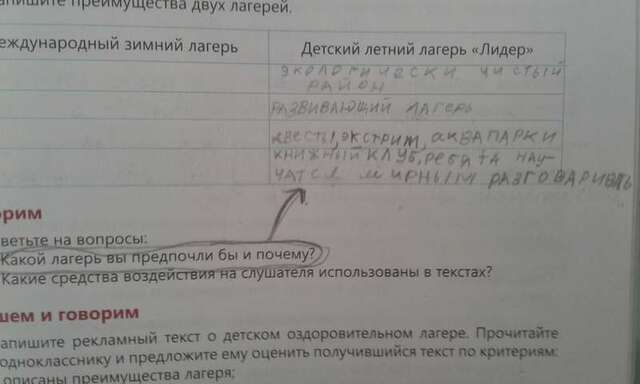 апишите преимущества двух лагерей.
еждународный зимний лагерь
Детский летний лагерь «Лидер»
экологически чистый
район
развивающий лагерь
квесты, экстрим, аквапарки
книжный клуб, ребята нау-
чатся мирным разговаривать
орим
ветьте на вопросы:
Какой лагерь вы предпочли бы и почему?
Какие средства воздействия на слушателя использованы в текстах?
шем и говорим
апишите рекламный текст о детском оздоровительном лагере. Прочитайте
однокласснику и предложите ему оценить получившийся текст по критериям:
описаны преимущества лагеря;